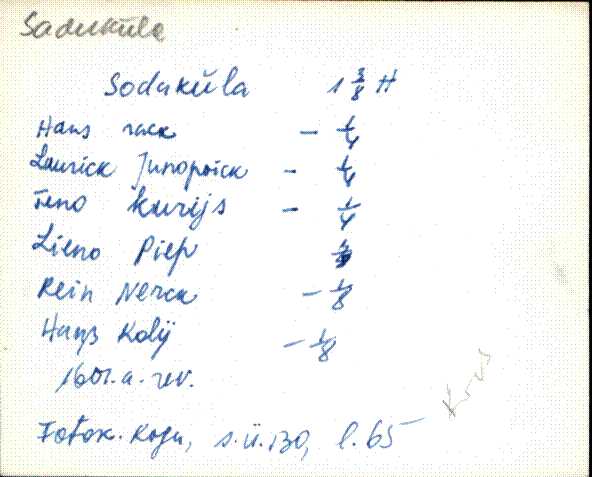 Saduküla
Sodakŭla 1 3/8 H
Hans rack - 1/4
Laurick Junopoick - 1/4
Teno kurijs - 1/4
Lieno Piep
Rein Nerck - 1/8
Hanß Kolÿ - 1/8
1601.a. rev.
Fotok. kogu, s.ü.130, l. 65